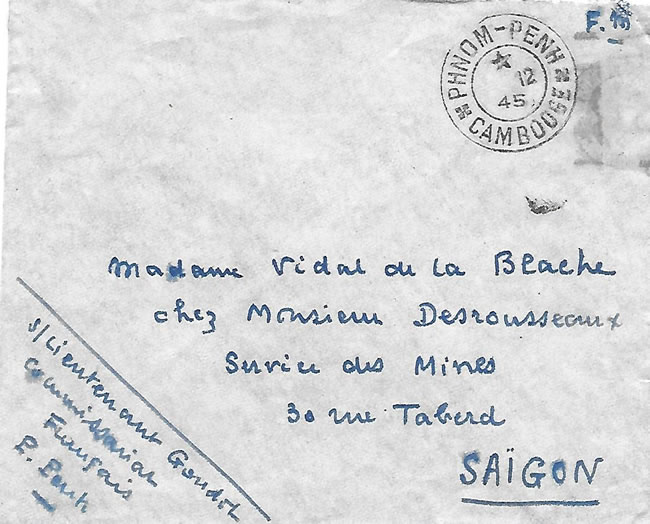 F.M
PHNOM-PENH
12
45
CAMBODGE
Madame Vidal de la Blache
chez Monsieur Desrousseaux
Service des Mines
30 rue Taberd
SAÏGON
s/Lieutenant Goudot
Commissariat
Français
P. Penh